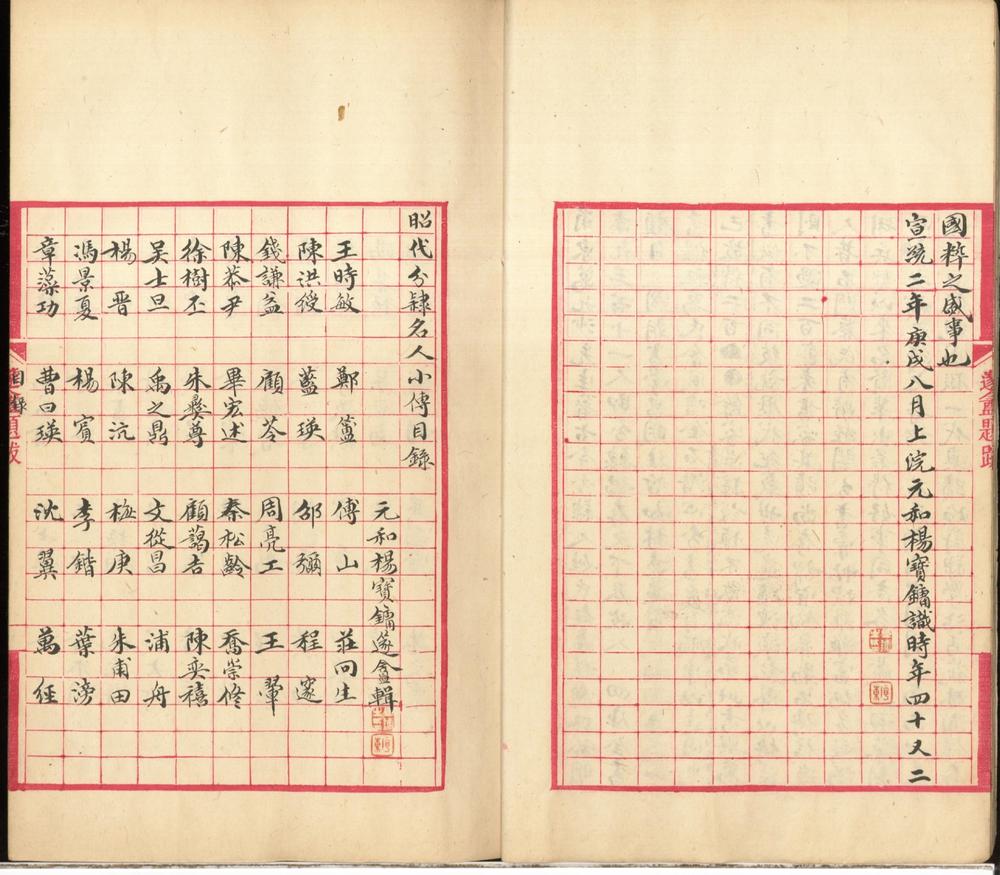 國粹之盛事也
宣統二年庚戌八月上浣元和楊寶鏞識時年四十又二
昭代分隸名人小傳目錄
元和楊寶鏞蓫盦輯
王時敏　鄭簠　傅山　莊冋生
陳洪綬　藍瑛　邵彌　程邃
錢謙益　顧苓　周亮工　王翬
陳恭尹　畢宏述　秦松齡　喬崇修
徐樹丕　朱彝尊　顧藹吉　陳奕禧
吳士旦　禹之鼎　文從昌　浦舟
楊晋　陳沆　梅庚　朱甫田
馮景夏　楊賓　李鍇　葉滂
章藻功　曹曰瑛　沈翼　萬經
目錄
題跋